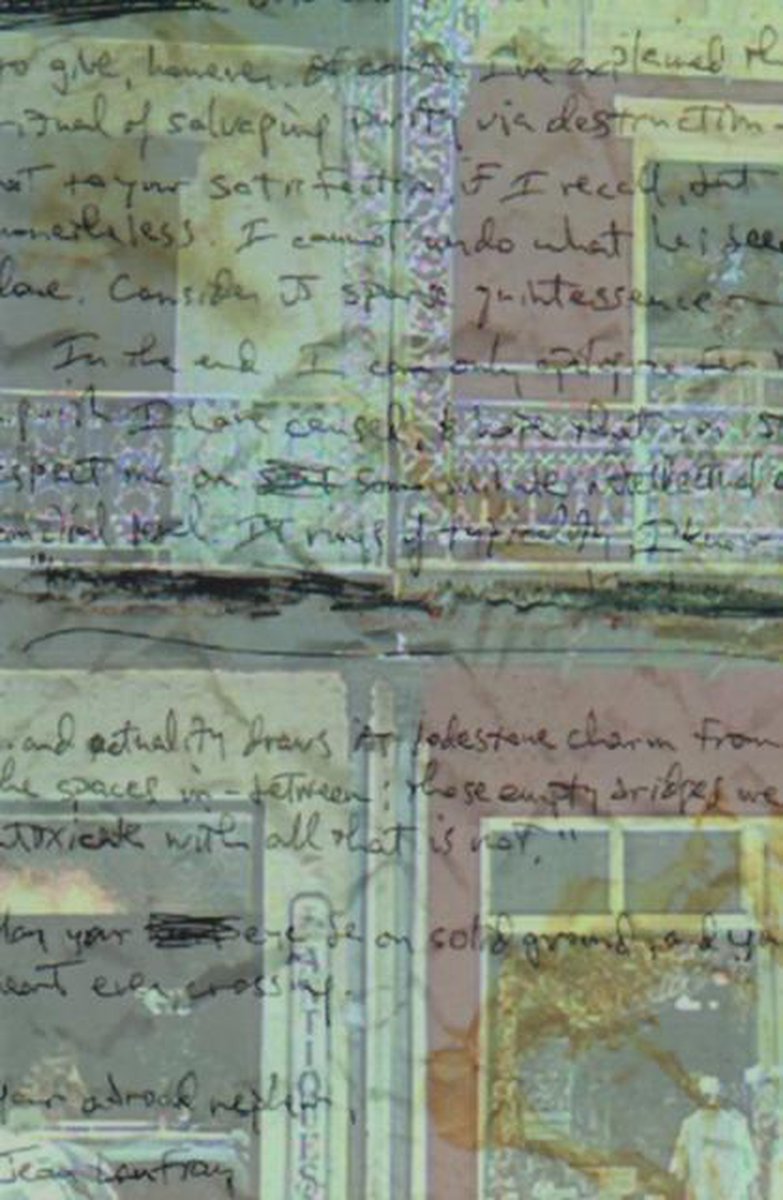 to give, however. Of course I've explained the
ritual of salvaging purity via destruction
not to your satisfaction if I recall, but
nonetheless. I cannot undo what has been
done. Consider it sparse quintessence
In the end I can only apologize for
I have caused, & hope that you
respect me on some intellectual
level. It rings of typicality, I know
and actuality draws its lodestone charm from
the spaces in-between: those empty bridges we
intoxicate with all that is not."
May your eye be on solid ground, and your
heart ever crossing.
Your abroad nephew,
Jean Lanfray
ANTIQUES